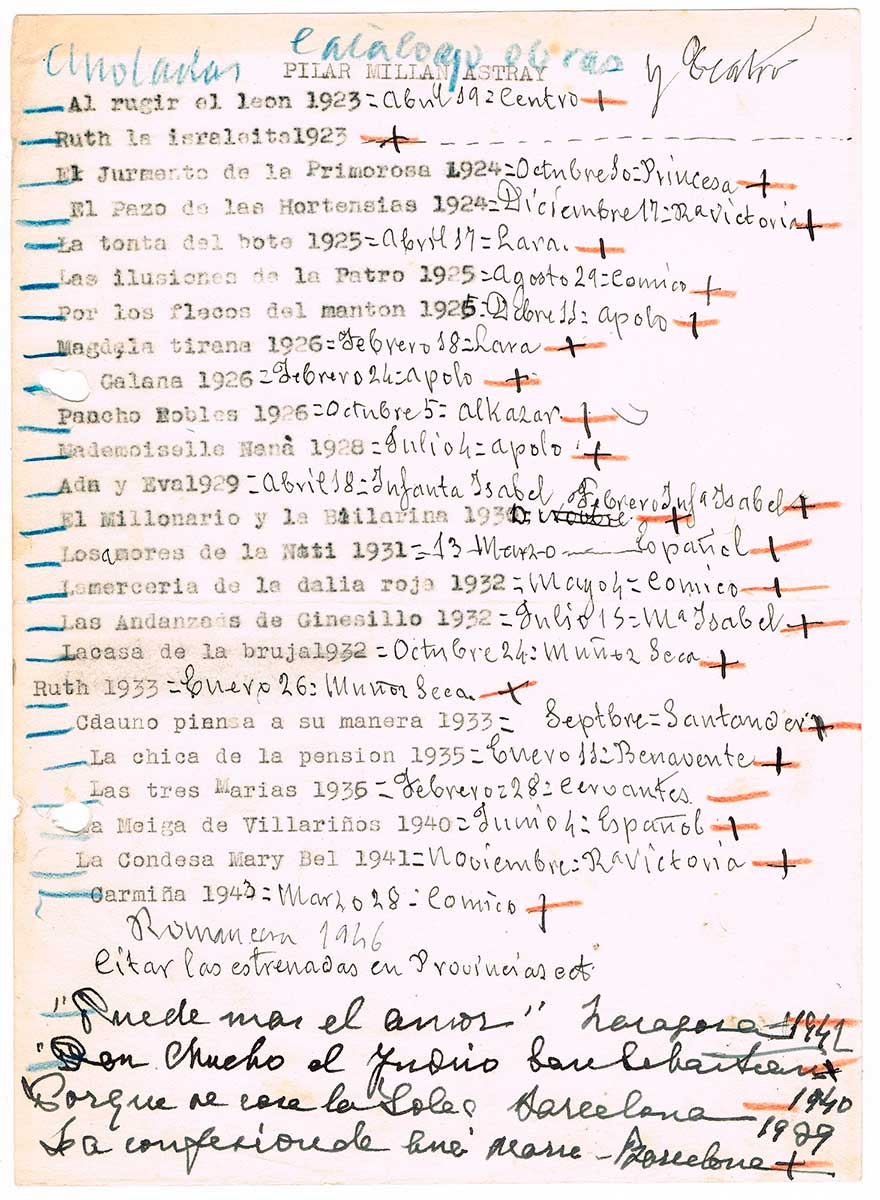 Anoladas Catálogo obras y Teatro
PILAR MILLAN ASTRAY
Al rugir el leon 1923=Abril 19=Centro
Ruth la israleita1923
El Jurmento de la Primorosa 1924=Octubre 10=Princesa
El Pazo de las Hortensias 1924=Diciembre 17=Rª Victoria
La tonta del bote 1925=Abril 17=Lara.
Las ilusiones de la Patro 1925=Agosto 29=Comico
Por los flecos del manton 1925=Dcbre 11=Apolo
Magdala tirana 1926=Febrero 18=Lara
Galana 1926=Febrero 24=Apolo
Pancho Robles 1926=Octubre 5=Alkazar.
Mademoiselle Naná 1928=Julio 4=Apolo
Ada y Eva1929=Abril 18=Infanta Isabel
El Millonario y la Bailarina 1930 Febrero Infª Isabel
Losamores de la Nati 1931=13 Marzo Español
Lamerceria de la dalia roja 1932=Mayo 4=Comico
Las Andanzads de Ginesillo 1932=Julio 15=Mª Isabel
Lacasa de la bruja1932=Octubre 24=Muñoz Seca
Ruth 1933=Enero 26=Muñoz Seca.
Cdauno piensa a su manera 1933= Septbre=Santander
La chica de la pension 1935=Enero 11=Benavente
Las tres Marias 1936=Febrero=28=Cervantes
a Meiga de Villariños 1940=Junio 4=Español
La Condesa Mary Bel 1941=Noviembre=Rª Victoria
Carmiña 1943=Marzo 28=Comico
1946
Citar las estrenadas en Provincias
"Puede mas el amor" Zaragoza 1941
"Don Chucho el Yndio San Sebastian
Porque se casa la Sole Barcelona 1940
La confesion de Marie - Barcelona 1929